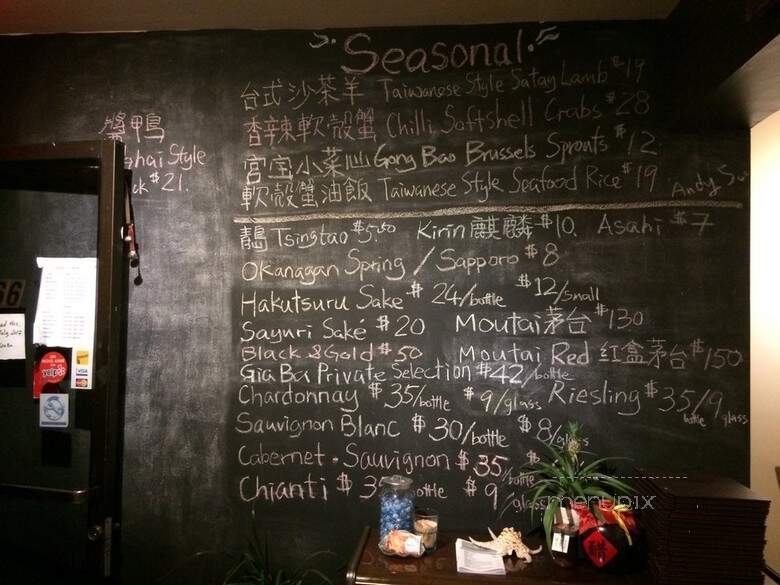 Seasonal
台式沙茶羊 Taiwanese Style Satay Lamb $19
香辣軟殼蟹 Chilli Softshell Crabs $28
宮宝小菜心 Gong Bao Brussels Sprouts $12
軟殼蟹油飯 Taiwanese Style Seafood Rice $19
Andy
Tsingtao $5.50 Kirin 麒麟 $10. Asahi $7
Okanagan Spring / Sapporo $8
Hakutsuru Sake $24/bottle $12/small
Sayuri Sake $20 Moutai 茅台 $130
Black & Gold $50 Moutai Red 红盒茅台 $150
Gia Ba Private Selection $42/bottle
Chardonnay $35/bottle $9/glass Riesling $35/9 bottle glass
Sauvignon Blanc $30/bottle $8/glass
Cabernet-Sauvignon $35/bottle $
Chianti $ bottle $9/glass
醬鴨
hai Style
ck $21.
66
yelp
VISA
menupix